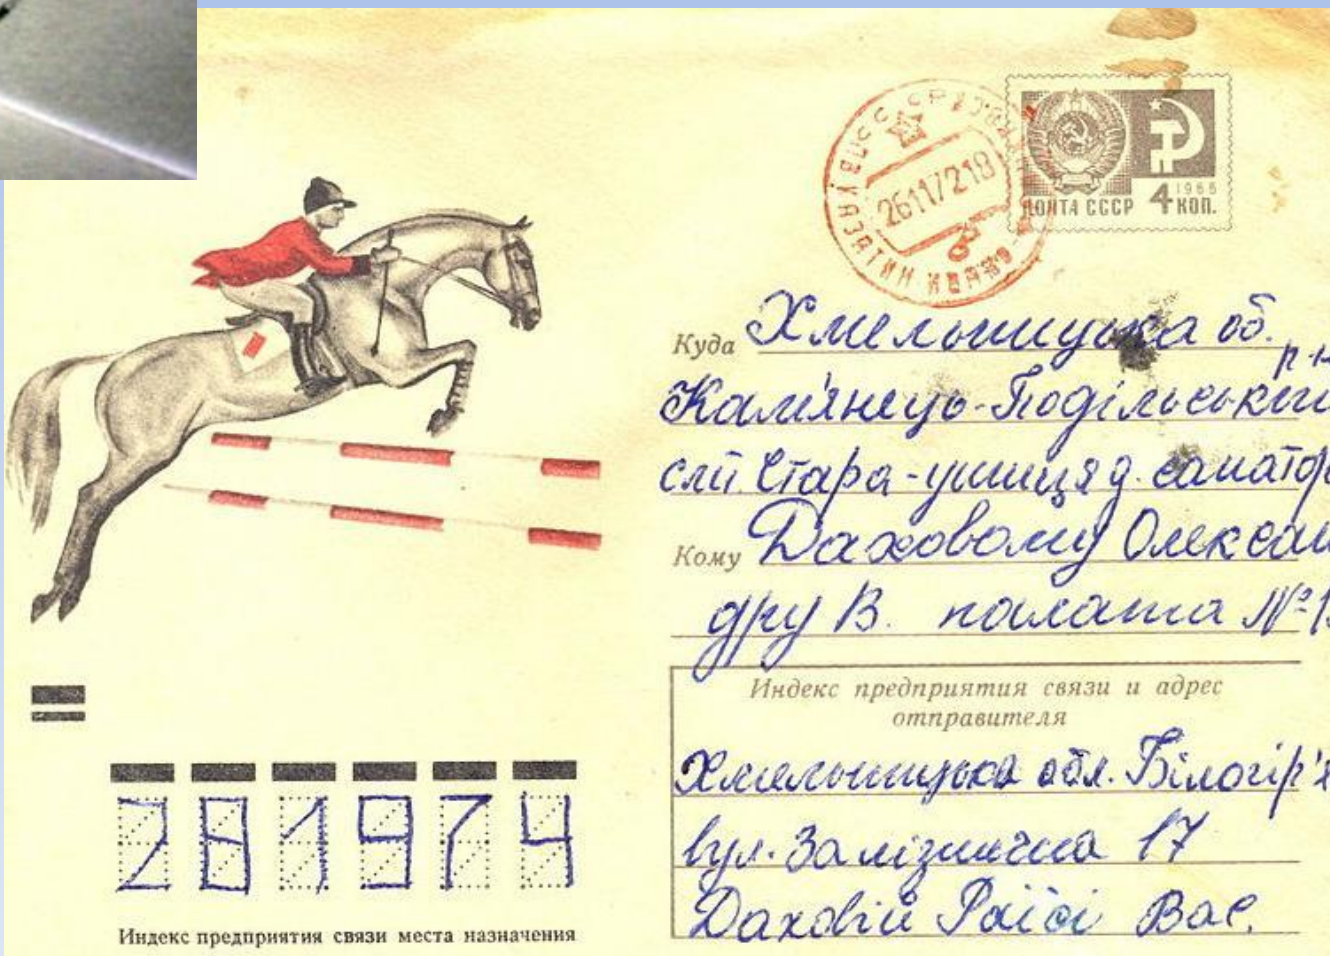 26117218
ПОЧТА СССР 4 1966 КОП.
Куда Хмельницька об.
Кам'янець-Подільський р-н
смт. Стара-ушиця д. санатор
Кому Даховому Олексан
дру В. палата №1
Индекс предприятия связи и адрес
отправителя
Хмельницька обл. Білогір'я
вул. Залізнична 17
Даховій Раїсі Вас.
281974
Индекс предприятия связи места назначения